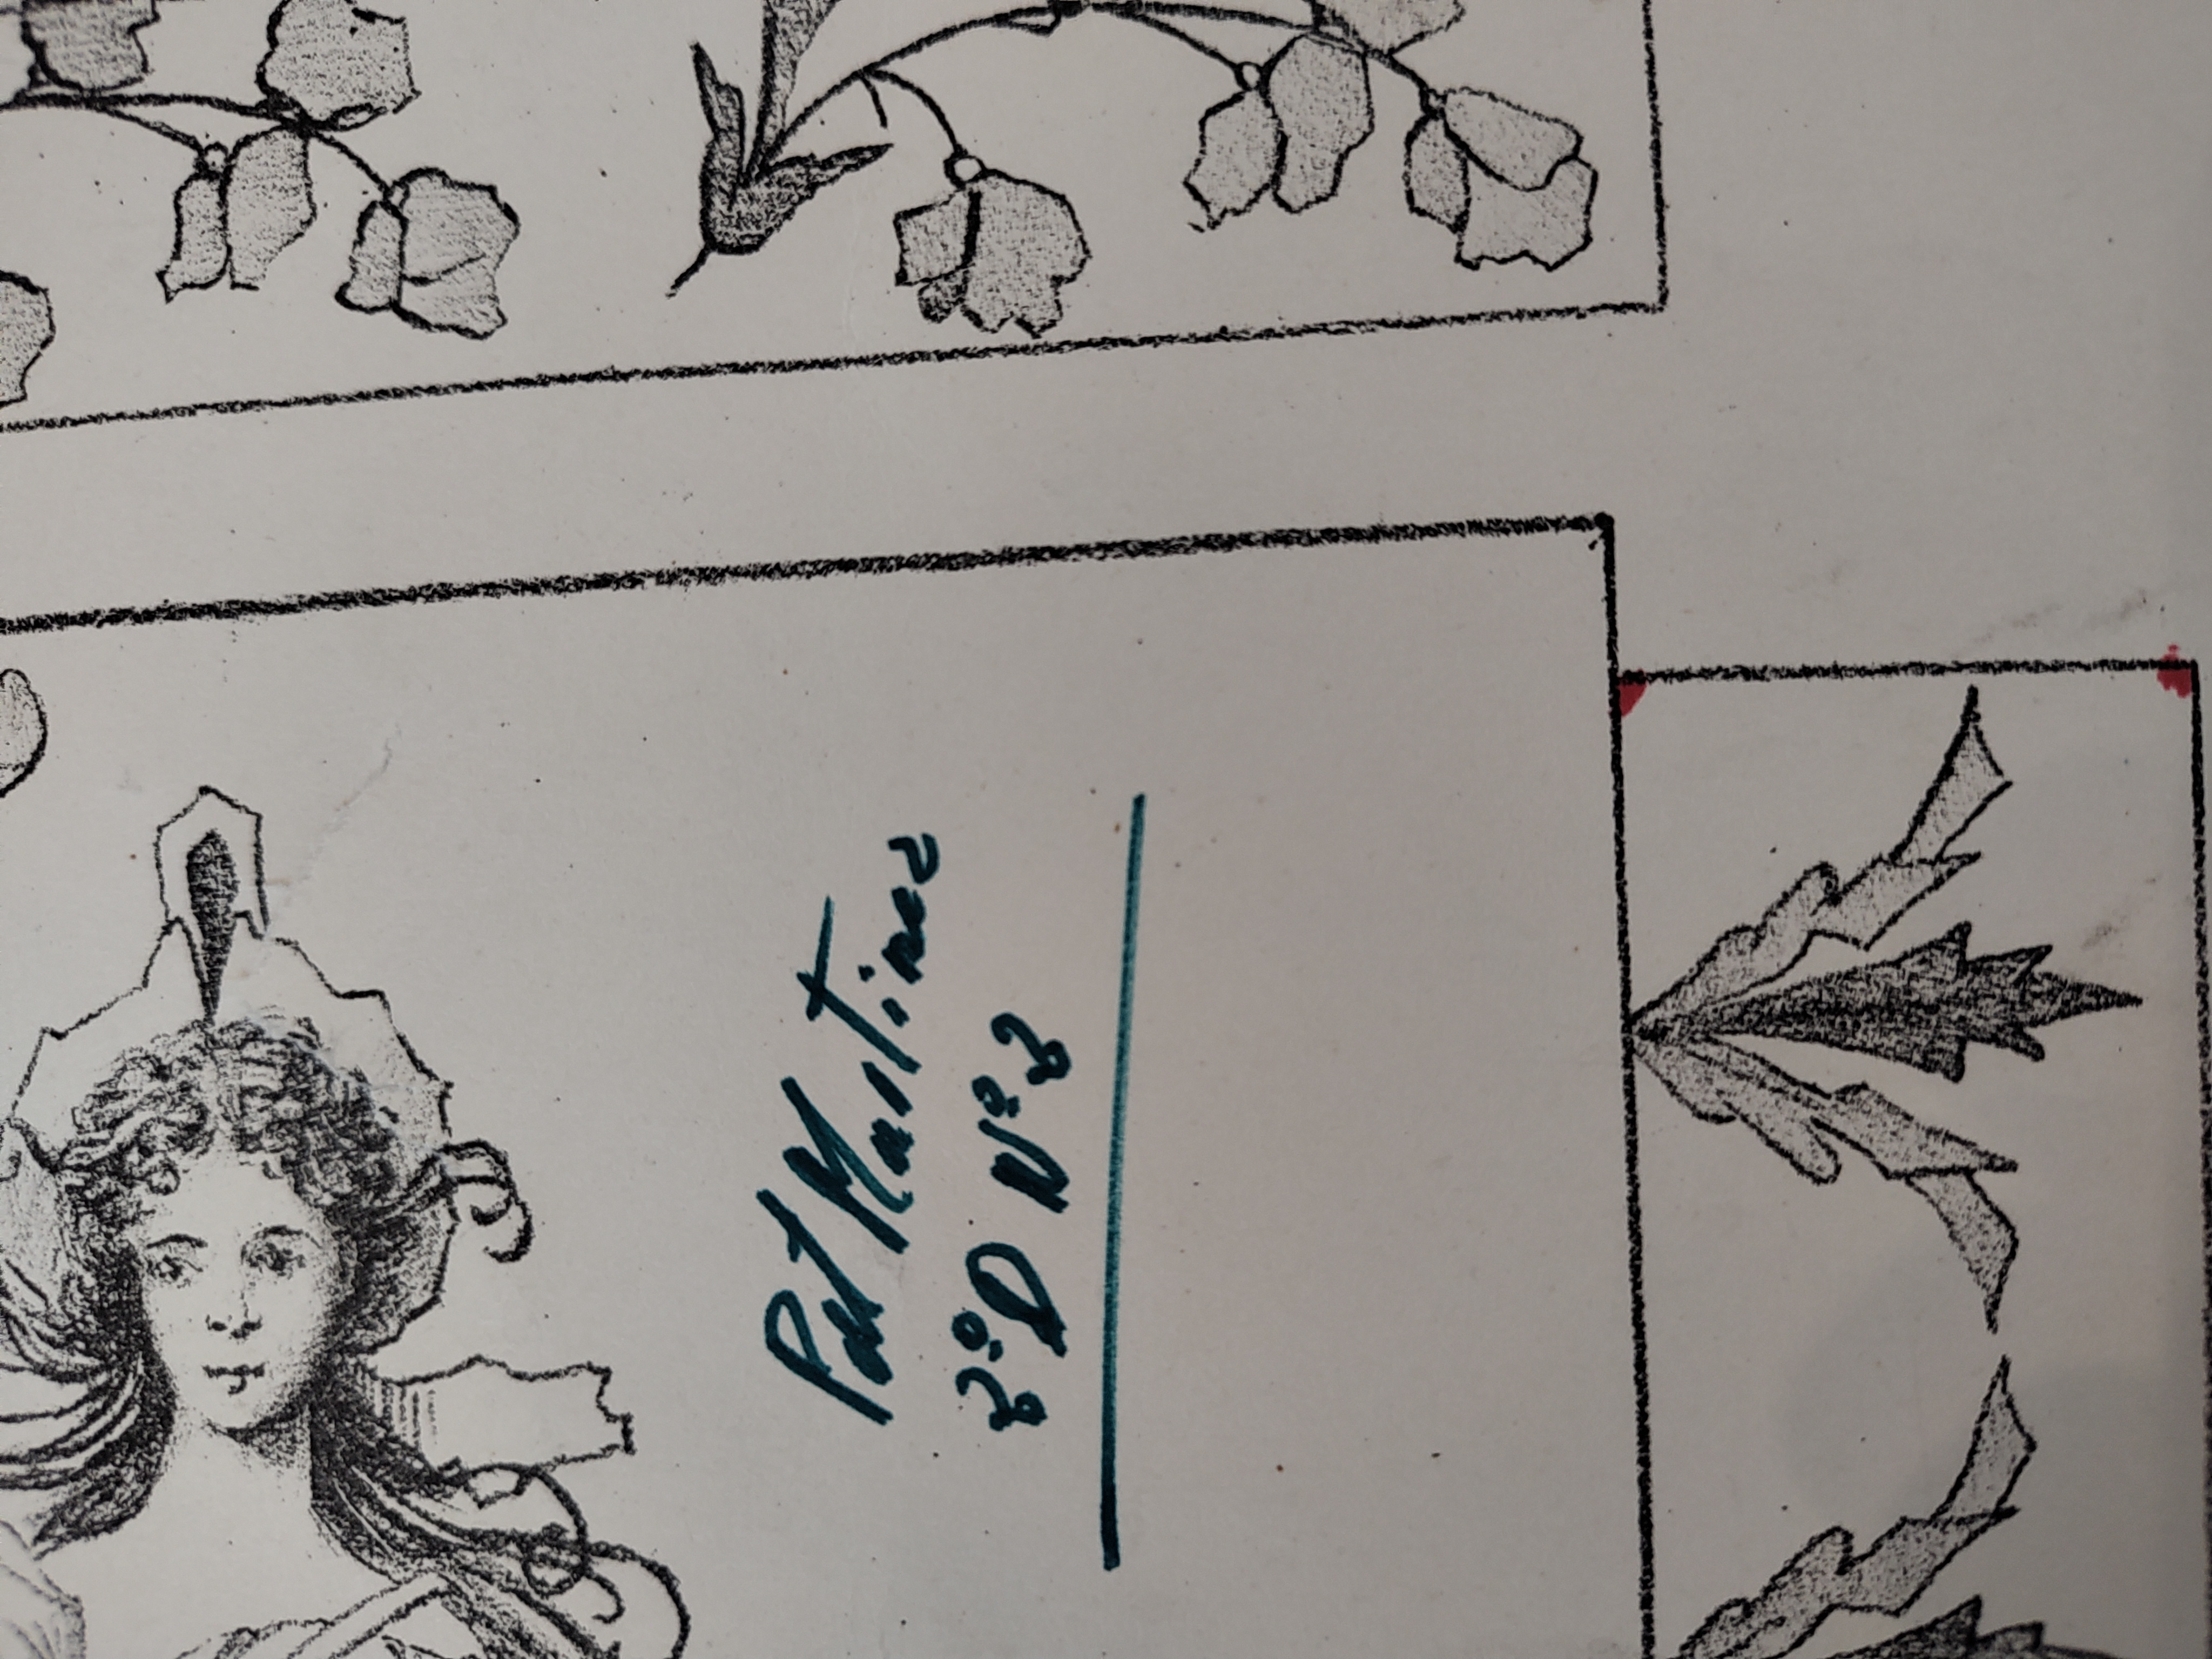 Pat Martinez
2º D Nº 2